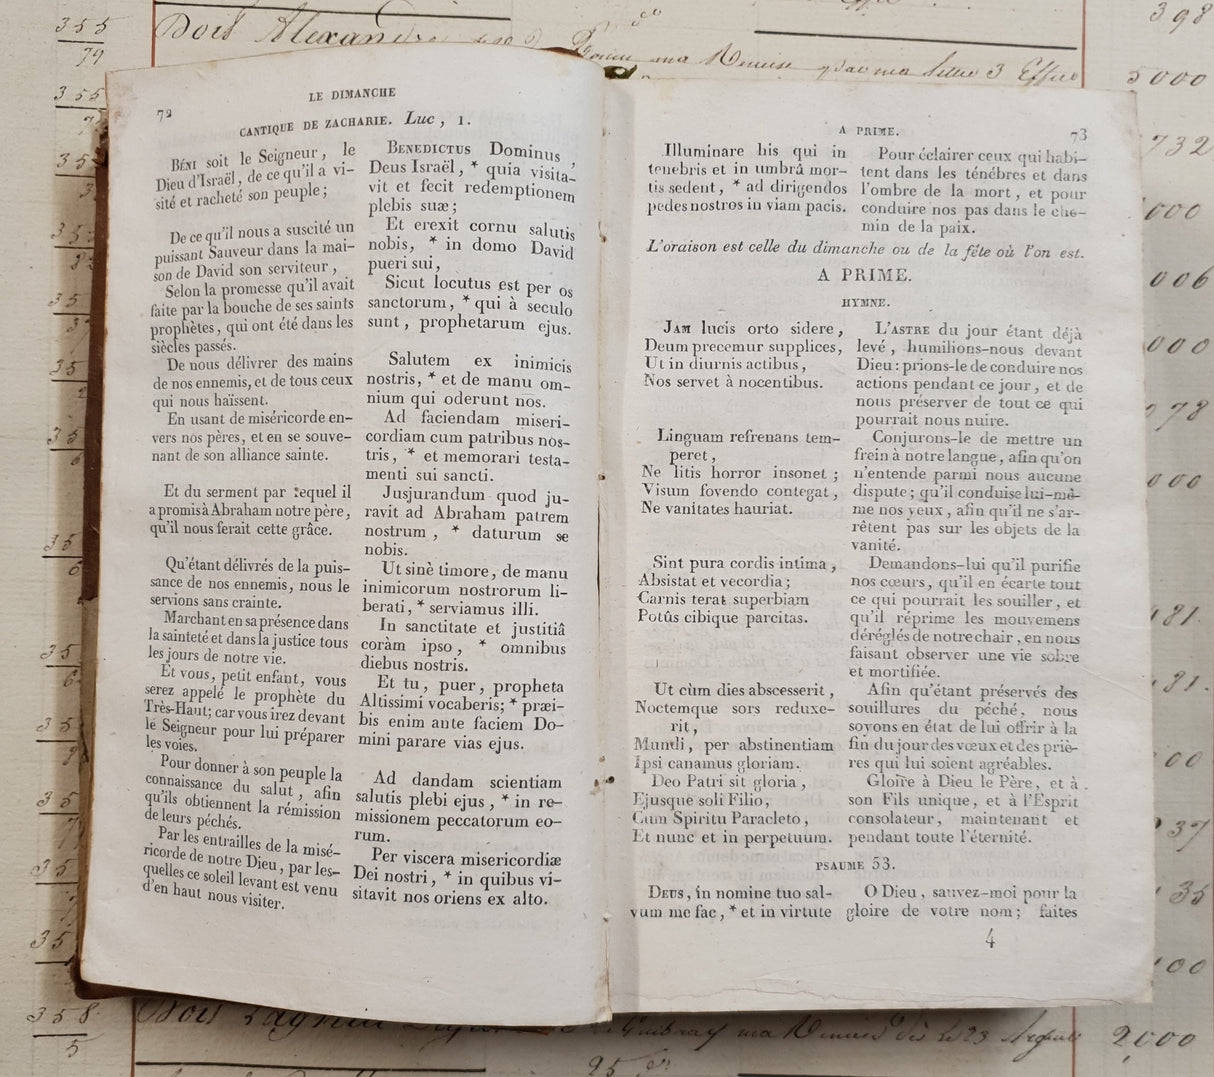 355
79
Doit Alexandre
ma Remise
ma lettre 3
398
5000
732
72
LE DIMANCHE
CANTIQUE DE ZACHARIE. Luc, 1.
BÉNI soit le Seigneur, le
Dieu d'Israël, de ce qu'il a vi-
sité et racheté son peuple;
De ce qu'il nous a suscité un
puissant Sauveur dans la mai-
son de David son serviteur,
Selon la promesse qu'il avait
faite par la bouche de ses saints
prophètes, qui ont été dans les
siècles passés.
De nous délivrer des mains
de nos ennemis, et de tous ceux
qui nous haïssent.
En usant de miséricorde en-
vers nos pères, et en se souve-
nant de son alliance sainte.
Et du serment par lequel il
a promis à Abraham notre père,
qu'il nous ferait cette grâce.
Qu'étant délivrés de la puis-
sance de nos ennemis, nous le
servions sans crainte.
Marchant en sa présence dans
la sainteté et dans la justice tous
les jours de notre vie.
Et vous, petit enfant, vous
serez appelé le prophète du
Très-Haut; car vous irez devant
le Seigneur pour lui préparer
les voies.
Pour donner à son peuple la
connaissance du salut, afin
qu'ils obtiennent la rémission
de leurs péchés.
Par les entrailles de la misé-
ricorde de notre Dieu, par les-
quelles ce soleil levant est venu
d'en haut nous visiter.
BENEDICTUS Dominus,
Deus Israël, * quia visita-
vit et fecit redemptionem
plebis suæ;
Et erexit cornu salutis
nobis, * in domo David
pueri sui,
Sicut locutus est per os
sanctorum, * qui à seculo
sunt, prophetarum ejus.
Salutem ex inimicis
nostris, * et de manu om-
nium qui oderunt nos.
Ad faciendam miseri-
cordiam cum patribus nos-
tris, * et memorari testa-
menti sui sancti.
Jusjurandum quod ju-
ravit ad Abraham patrem
nostrum, * daturum se
nobis.
Ut sinè timore, de manu
inimicorum nostrorum li-
berati, * serviamus illi.
In sanctitate et justitiâ
coràm ipso, * omnibus
diebus nostris.
Et tu, puer, propheta
Altissimi vocaberis; * præi-
bis enim ante faciem Do-
mini parare vias ejus.
Ad dandam scientiam
salutis plebi ejus, * in re-
missionem peccatorum eo-
rum.
Per viscera misericordiæ
Dei nostri, * in quibus vi-
sitavit nos oriens ex alto.
A PRIME.
73
Illuminare his qui in
tenebris et in umbrâ mor-
tis sedent, * ad dirigendos
pedes nostros in viam pacis.
Pour éclairer ceux qui habi-
tent dans les ténèbres et dans
l'ombre de la mort, et pour
conduire nos pas dans le che-
min de la paix.
L'oraison est celle du dimanche ou de la fête où l'on est.
A PRIME.
HYMNE.
JAM lucis orto sidere,
Deum precemur supplices,
Ut in diurnis actibus,
Nos servet à nocentibus.
Linguam refrenans tem-
peret,
Ne litis horror insonet;
Visum fovendo contegat,
Ne vanitates hauriat.
Sint pura cordis intima,
Absistat et vecordia;
Carnis terat superbiam
Potûs cibique parcitas.
Ut cùm dies abscesserit,
Noctemque sors reduxe-
rit,
Mundi, per abstinentiam
Ipsi canamus gloriam.
Deo Patri sit gloria,
Ejusque soli Filio,
Cum Spiritu Paracleto,
Et nunc et in perpetuum.
L'ASTRE du jour étant déjà
levé, humilions-nous devant
Dieu: prions-le de conduire nos
actions pendant ce jour, et de
nous préserver de tout ce qui
pourrait nous nuire.
Conjurons-le de mettre un
frein à notre langue, afin qu'on
n'entende parmi nous aucune
dispute; qu'il conduise lui-mê-
me nos yeux, afin qu'il ne s'ar-
rêtent pas sur les objets de la
vanité.
Demandons-lui qu'il purifie
nos cœurs, qu'il en écarte tout
ce qui pourrait les souiller, et
qu'il réprime les mouvemens
déréglés de notre chair, en nous
faisant observer une vie sobre
et mortifiée.
Afin qu'étant préservés des
souillures du péché, nous
soyons en état de lui offrir à la
fin du jour des vœux et des priè-
res qui lui soient agréables.
Gloire à Dieu le Père, et à
son Fils unique, et à l'Esprit
consolateur, maintenant et
pendant toute l'éternité.
PSAUME 53.
DEUS, in nomine tuo sal-
vum me fac, * et in virtute
O Dieu, sauvez-moi pour la
gloire de votre nom; faites
4
358
5
Doit
ma Remise
2,000
25